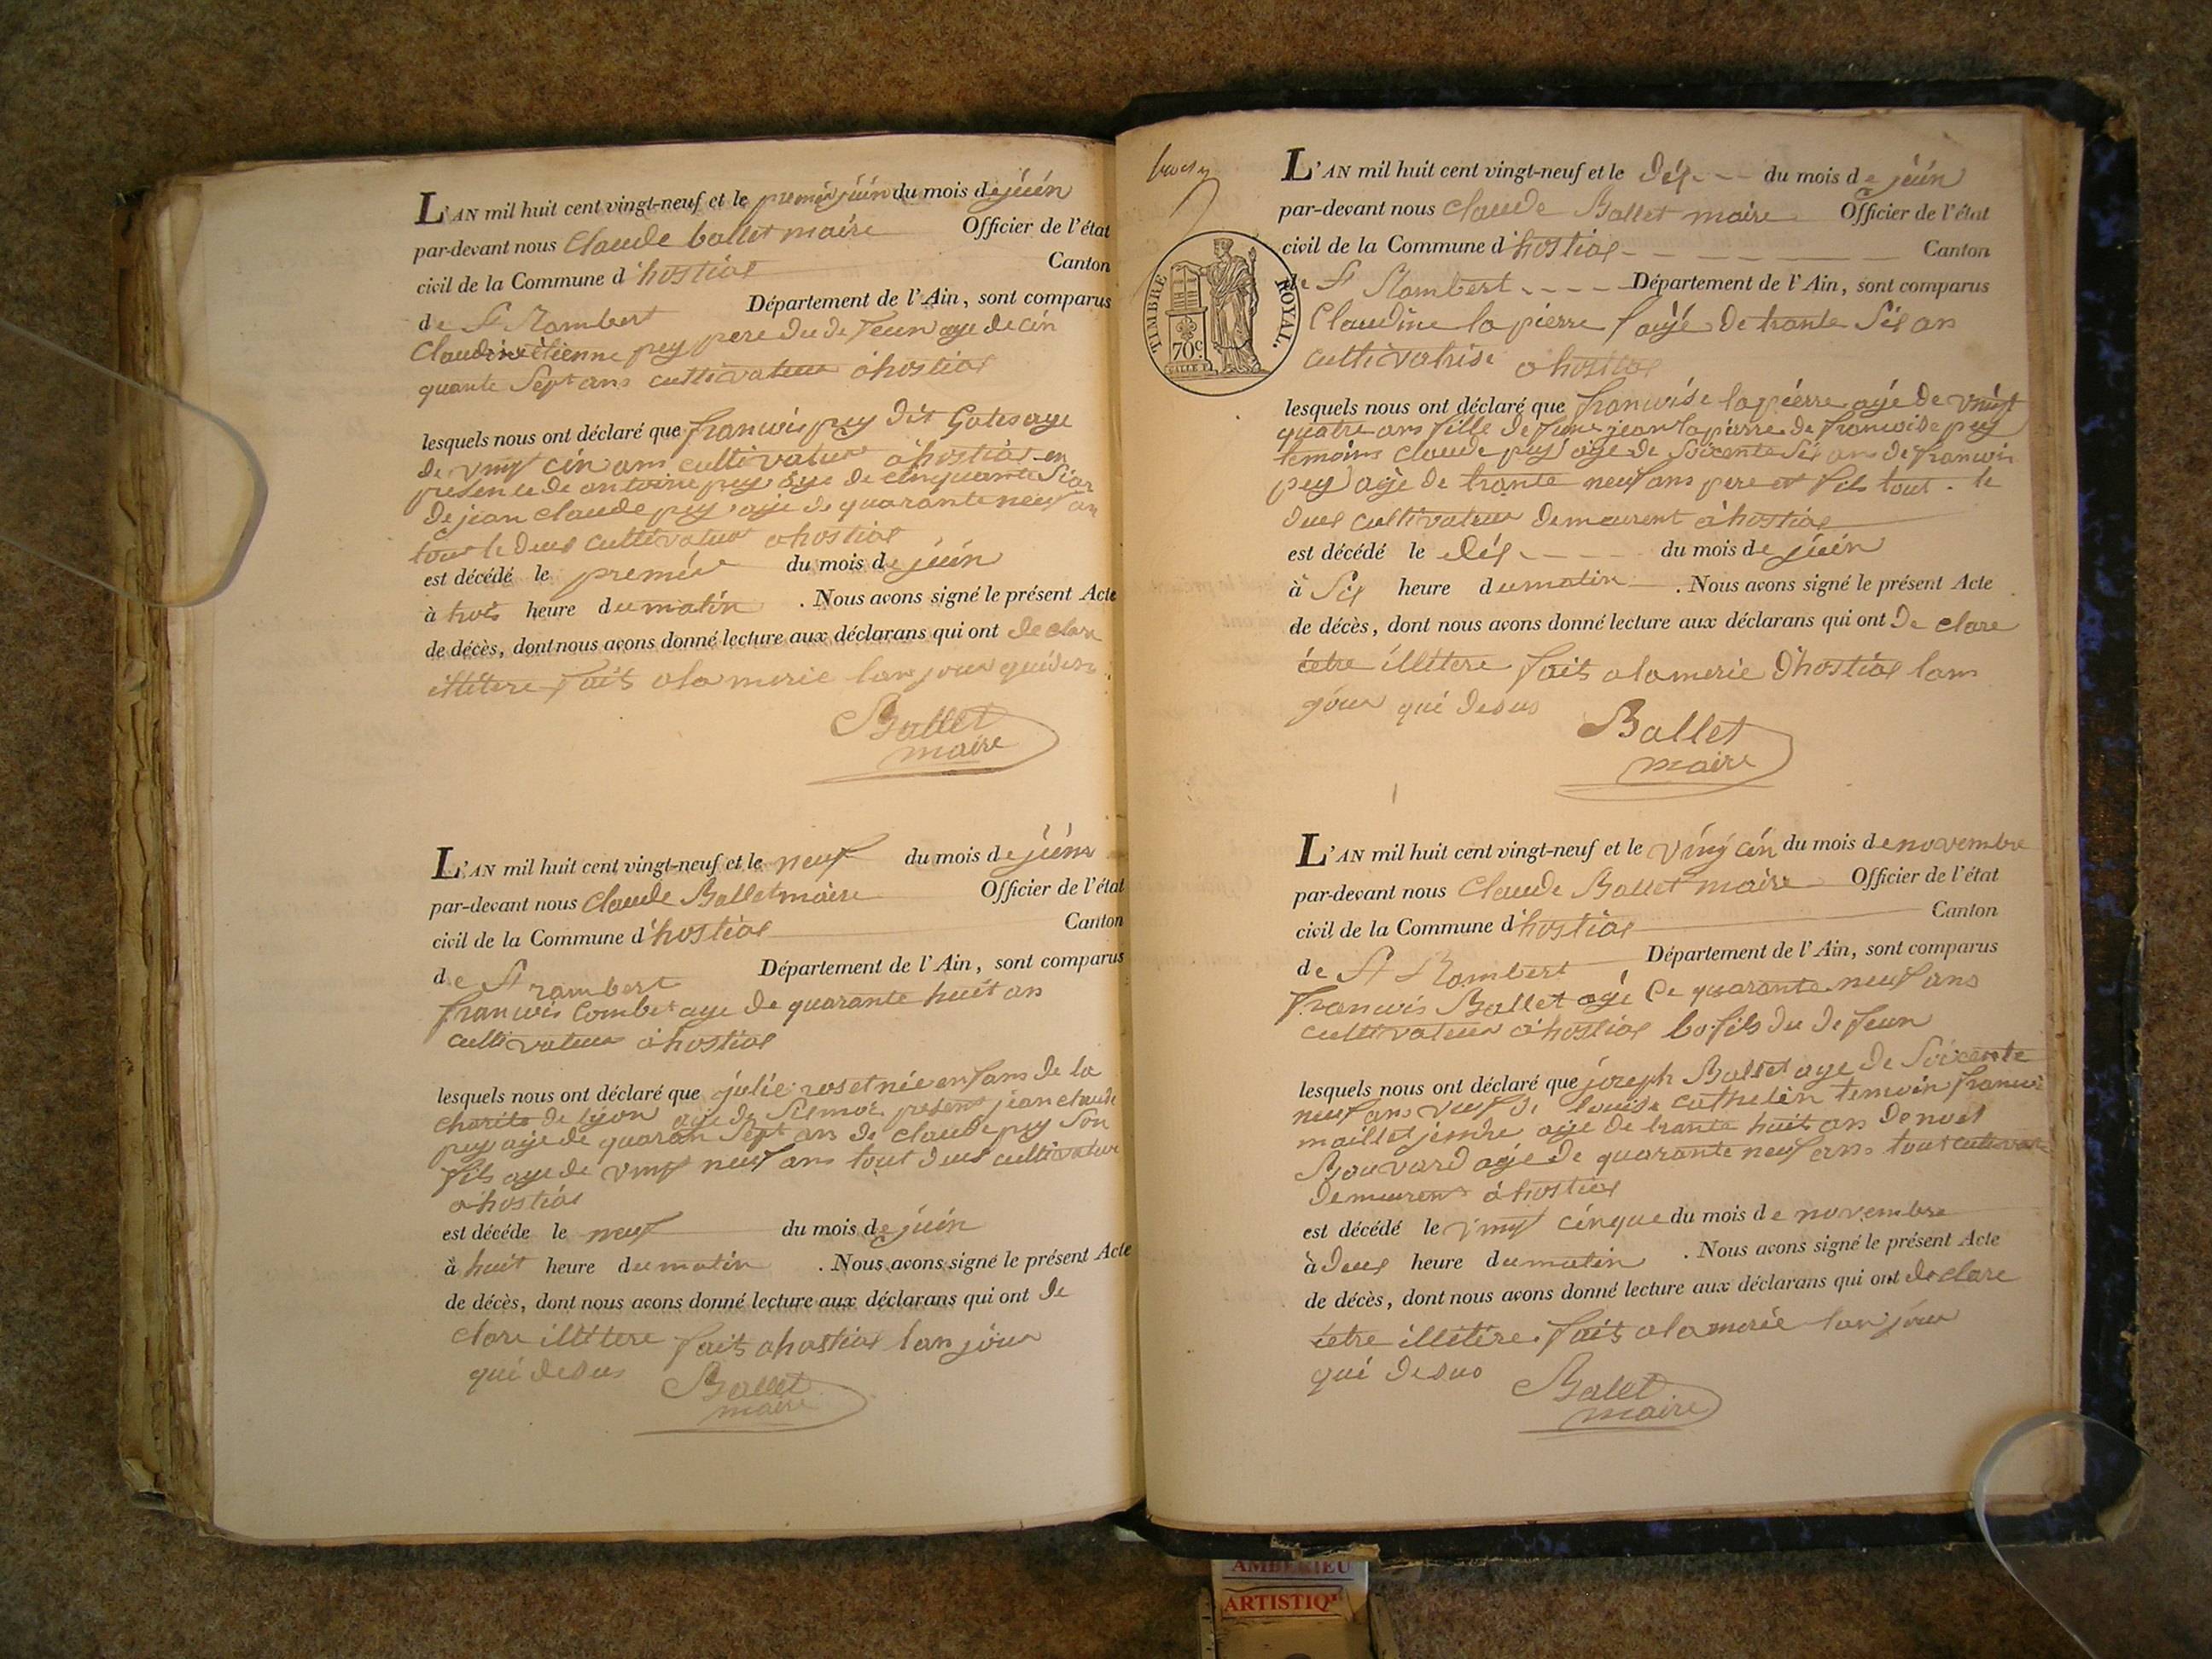 L'AN mil huit cent vingt-neuf et le premié juin du mois de juin
par-devant nous Claude ballet maire Officier de l'état
civil de la Commune d'hostias Canton
de St Rambert Département de l'Ain, sont comparus
étienne pey pere du defeun age de cin
quante Sept ans cultivateur a hostias
lesquels nous ont déclaré que francois pey dit Gates age
de vingt cin ans cultivateur a hostias en
présence de antoine pey age de cinquante
de jean claude pey age de quarante neuf an
tout le deus cultivateur a hostias
est décédé le premiér du mois de juin
à trois heure du matin . Nous avons signé le présent Acte
de décès, dont nous avons donné lecture aux déclarans qui ont declare
illétere fait a la merie lan jour qui desu
Ballet
maire
L'AN mil huit cent vingt-neuf et le neuf du mois de juin
par-devant nous Claude Ballet maire Officier de l'état
civil de la Commune d'hostias Canton
de St rambert Département de l'Ain, sont comparus
francois Combet age de quarante huit an
cultivateur a hostias
lesquels nous ont déclaré que julie roset née enfans de la
charite de lyon age de Sis mois present jean claude
pey age de quaran Sept ans de claude pey Son
fils age de vingt neuf ans tout deus cultivateur
a hostias
est décéde le neuf du mois de juin
à huit heure du matin . Nous avons signé le présent Acte
de décès, dont nous avons donné lecture aux déclarans qui ont de
clare illétere fait a hostias lan jour
qui desus
Ballet
maire
L'AN mil huit cent vingt-neuf et le dés du mois de juin
par-devant nous Claude Ballet maire Officier de l'état
civil de la Commune d'hostias Canton
de St Rambert Département de l'Ain, sont comparus
TIMBRE ROYAL.
70c
Claudine lapierre agé de trante Sis an
cultivatrise a hostias
lesquels nous ont déclaré que francoise lapierre agé de vingt
quatre ans fille de jean lapierre de francoise pey
temoins Claude pey age de Soicente Sis ans de francois
pey agé de trante neuf ans pere et fils tout le
deus cultivateur demeurent a hostias
est décédé le dés du mois de juin
à Sis heure du matin . Nous avons signé le présent Acte
de décès, dont nous avons donné lecture aux déclarans qui ont de clare
etre illétere fait a la merie d'hostias lan
jour qui desus
Ballet
maire
L'AN mil huit cent vingt-neuf et le ving cin du mois de novembre
par-devant nous Claude Ballet maire Officier de l'état
civil de la Commune d'hostias Canton
de St Rambert Département de l'Ain, sont comparus
francois Ballet agé de quarante neuf ans
cultivateur a hostias bofils du defeun
lesquels nous ont déclaré que joseph Ballet age de Soicente
neuf ans veuf de louise cathelin temoin francoi
maillet jendre age de trante huit an de noel
Bouvard agé de quarante neuf ans tout
demeurent a hostias
est décédé le vingt cinque du mois de novembre
à deus heure du matin . Nous avons signé le présent Acte
de décès, dont nous avons donné lecture aux déclarans qui ont declare
etre illétére fait a la merie lan jour
qui desus
Balet
maire
AMBERIEU
ARTISTIQ